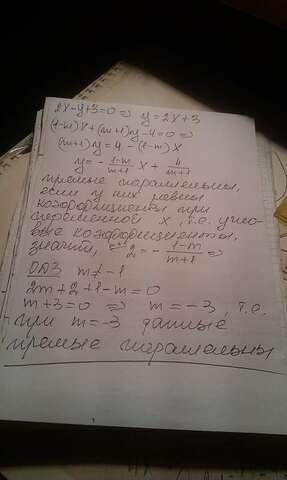 2x-y+3=0 ⇒ y=2x+3
(1-m)x+(m+1)y-4=0 ⇒
(m+1)y=4-(1-m)x
y=-\frac{1-m}{m+1}x+\frac{4}{m+1}
прямые параллельны,
если у них равны
коэффициенты при
переменной x, т.е. угло-
вые коэффициенты,
значит, 2=-\frac{1-m}{m+1} ⇒
ОДЗ m≠-1
2m+2+1-m=0
m+3=0 ⇒ m=-3, т.е.
при m=-3 данные
прямые параллельны